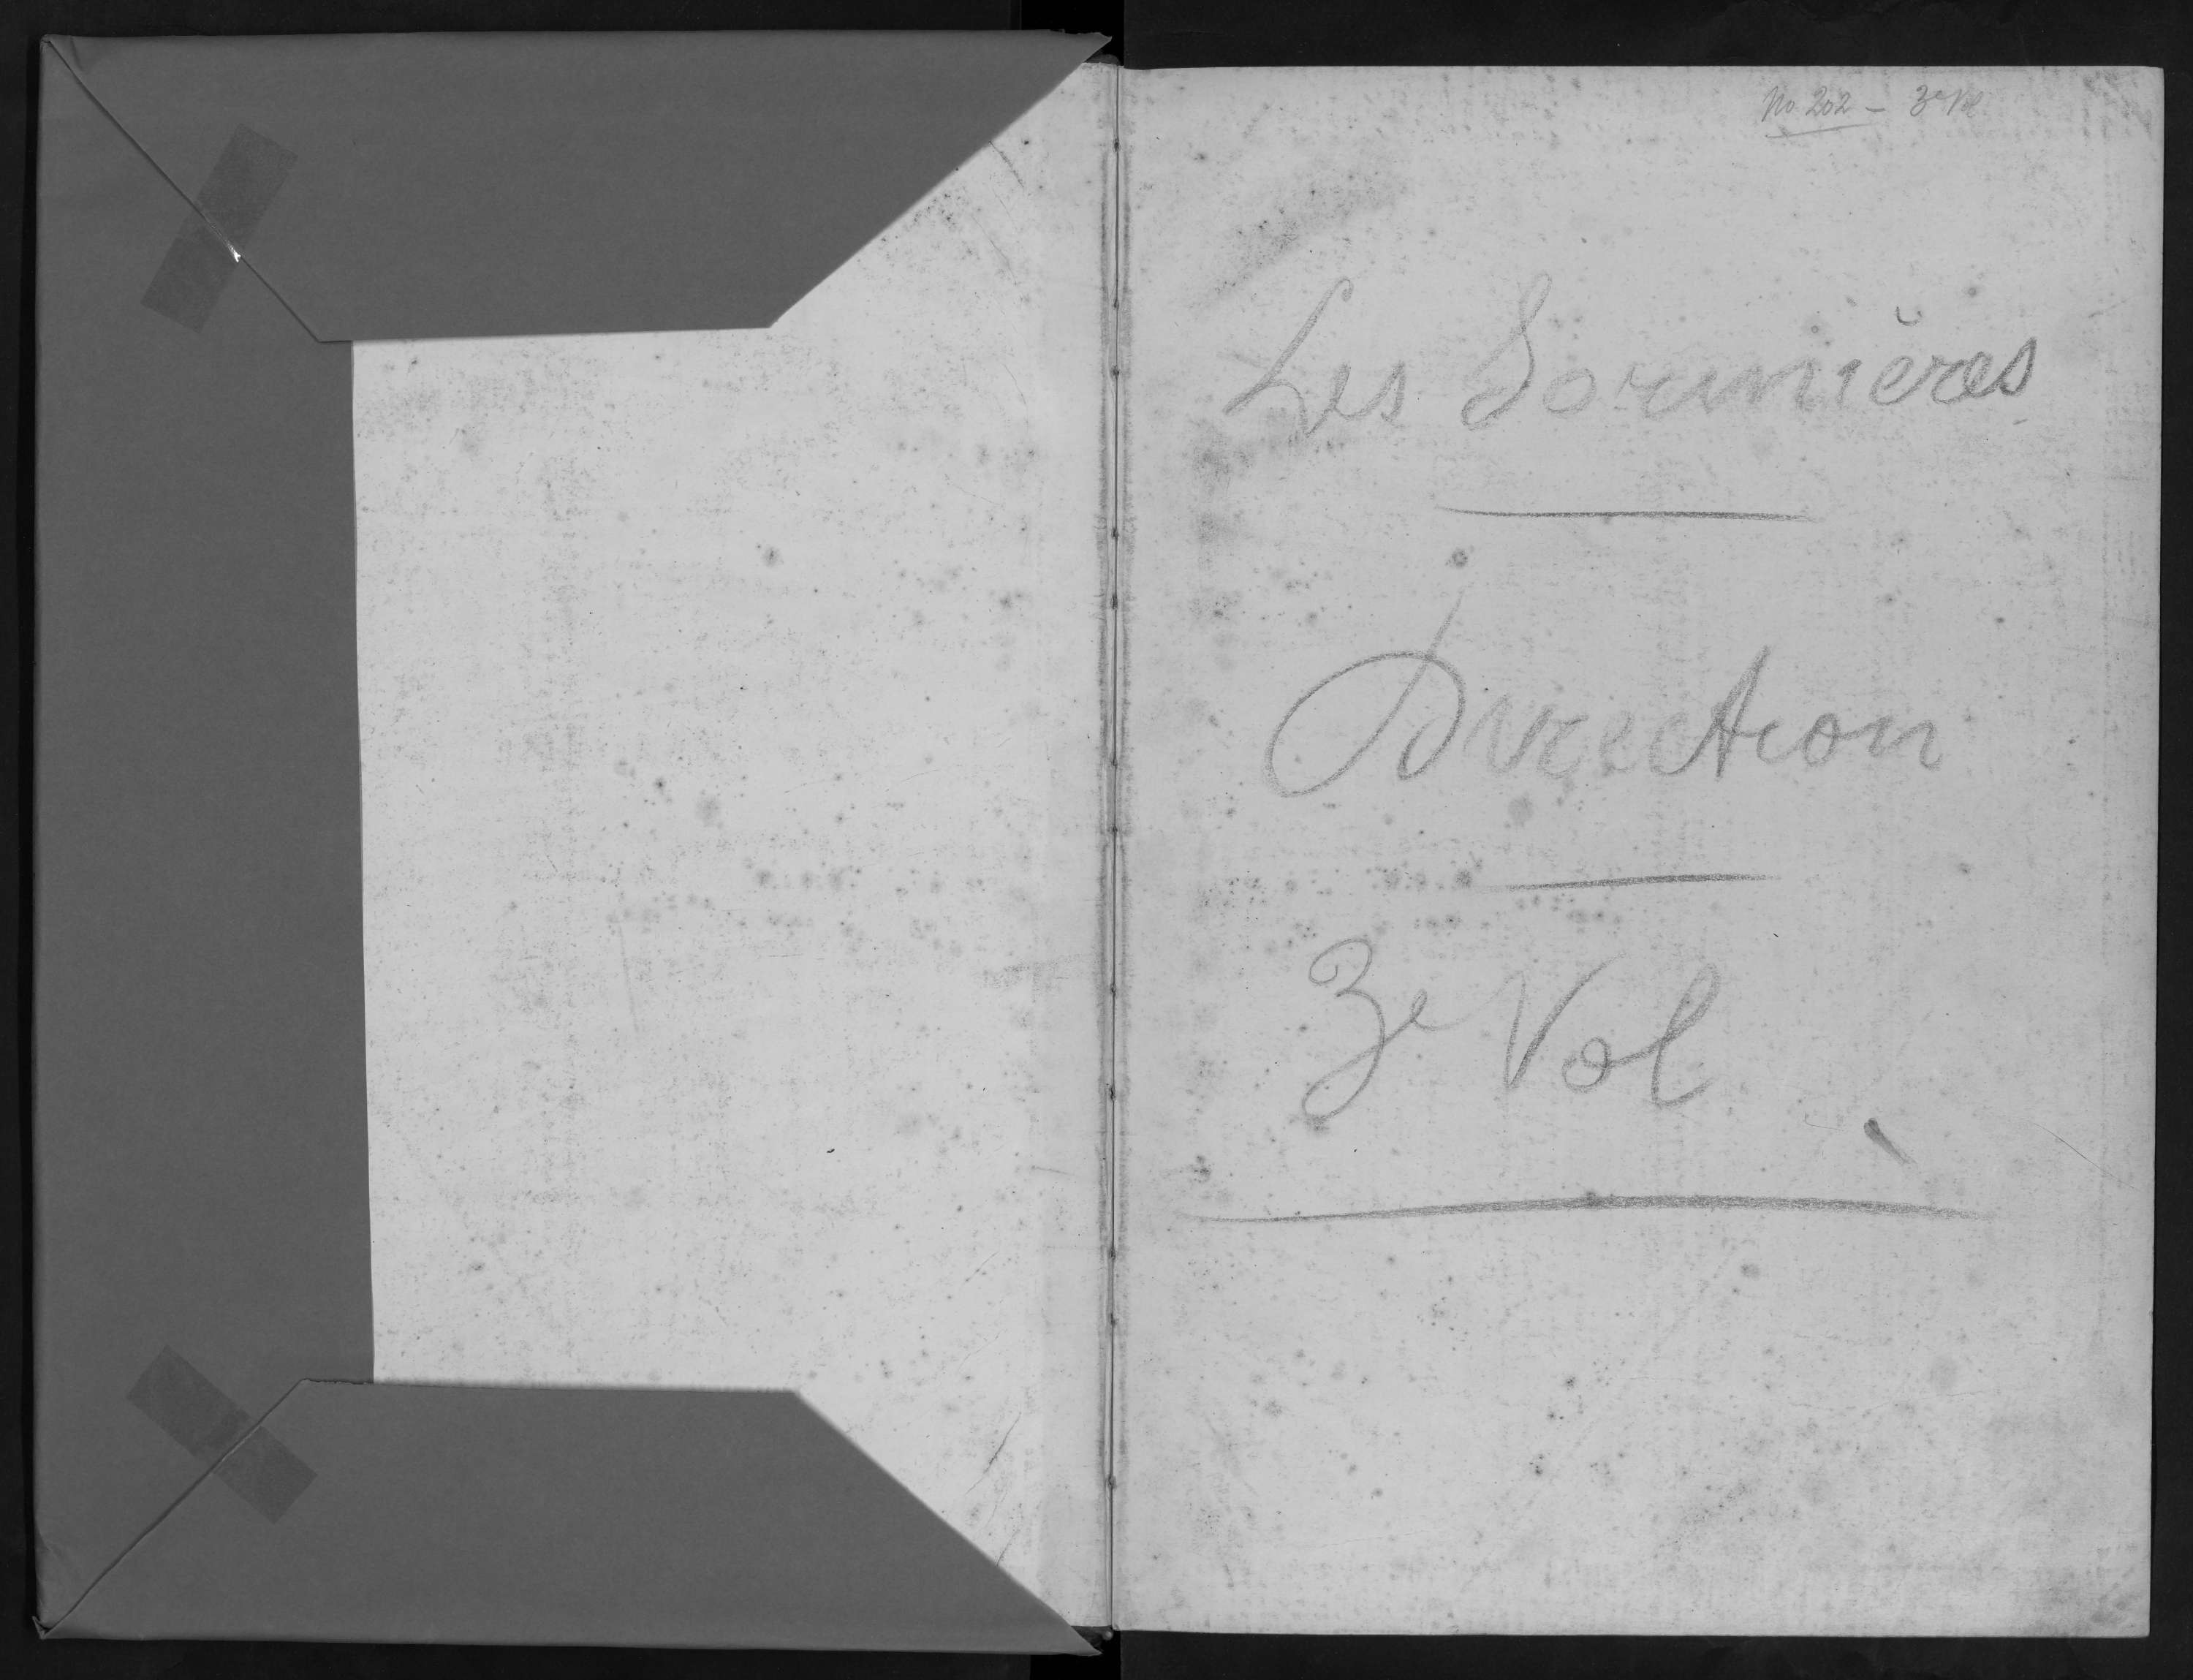 No 202 – 3e Vol
Les Sorinières
Direction
3e Vol